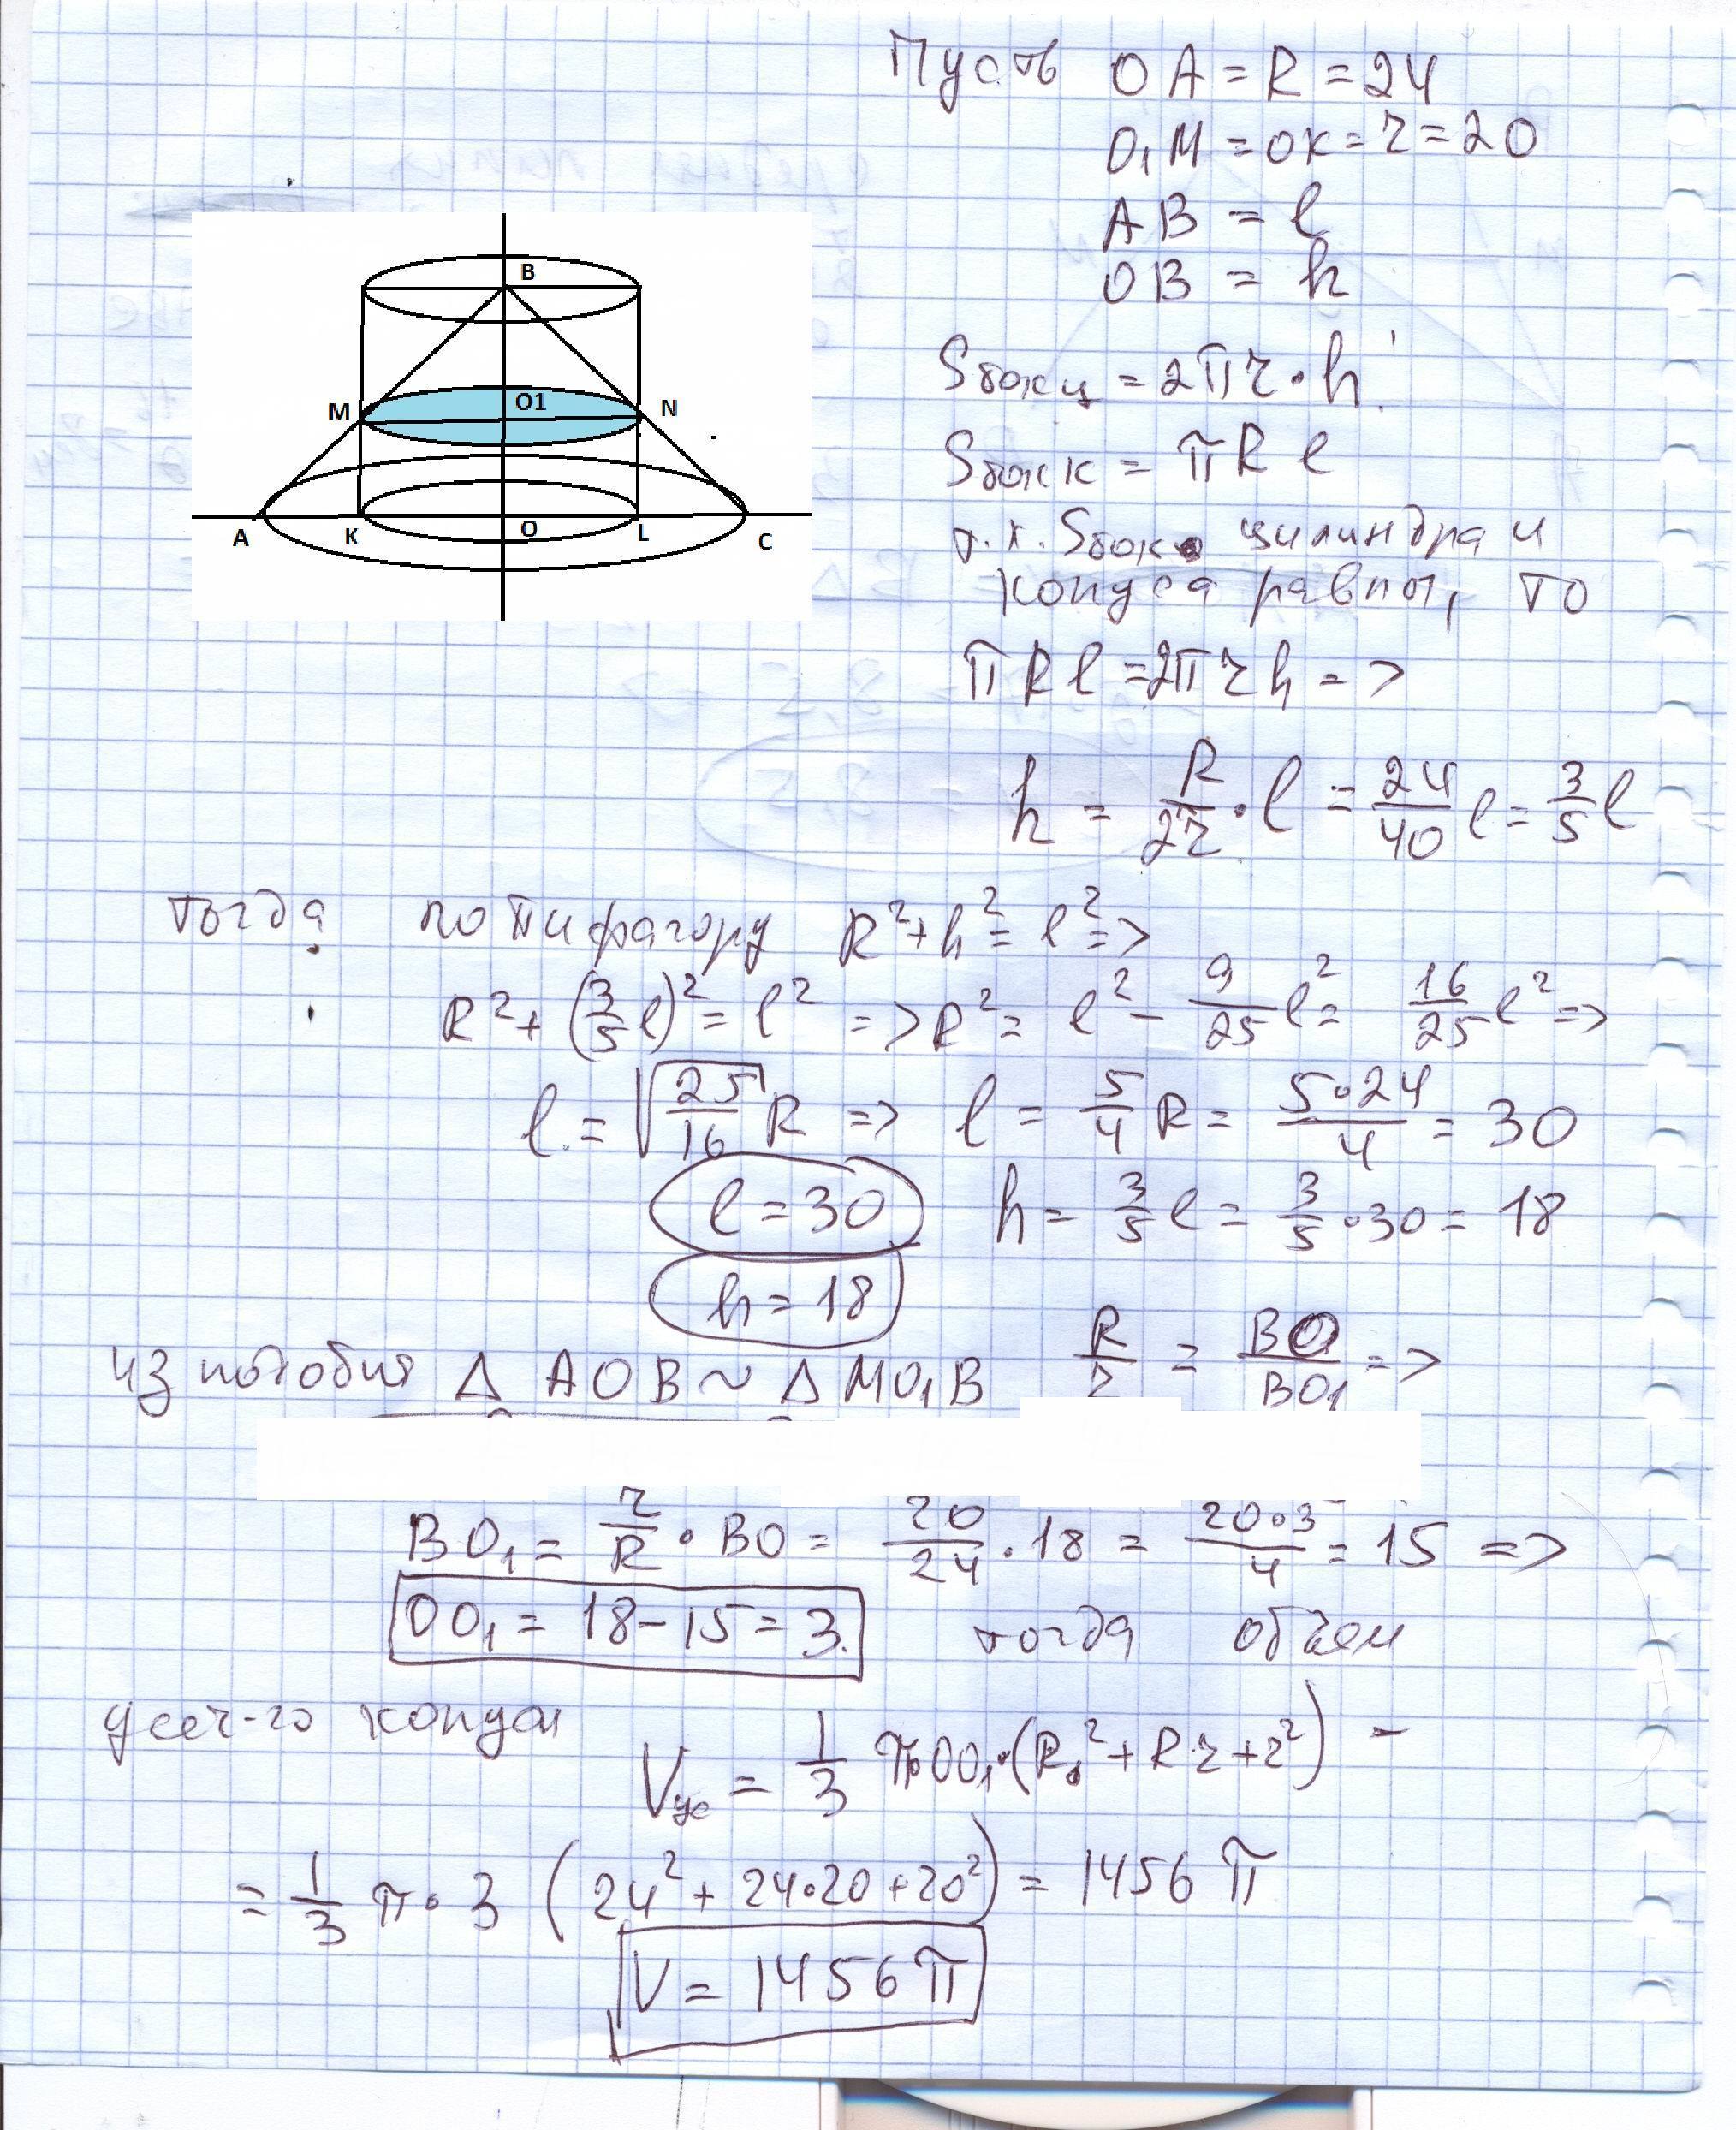 Пусть OA = R = 24
O₁M = OK = r = 20
AB = l
OB = h
B
M O1 N
A K O L C
Sбок ц = 2πr · h
Sбок к = πR l
т.к. Sбок цилиндра и
конуса равны, то
πRl = 2πrh =>
h = R/2r · l = 24/40 l = 3/5 l
тогда по Пифагору R² + h² = l² =>
R² + (3/5 l)² = l² => R² = l² - 9/25 l² = 16/25 l² =>
l = √(25/16) R => l = 5/4 R = 5·24/4 = 30
l = 30 h = 3/5 l = 3/5 · 30 = 18
h = 18
из подобия Δ AOB ~ Δ MO₁B R/r = BO/BO₁ =>
BO₁ = r/R · BO = 20/24 · 18 = 20·3/4 = 15 =>
OO₁ = 18 - 15 = 3. тогда объем
усеч-го конуса
Vус = 1/3 π·OO₁·(R² + Rr + r²) =
= 1/3 π · 3 (24² + 24·20 + 20²) = 1456 π
V = 1456 π